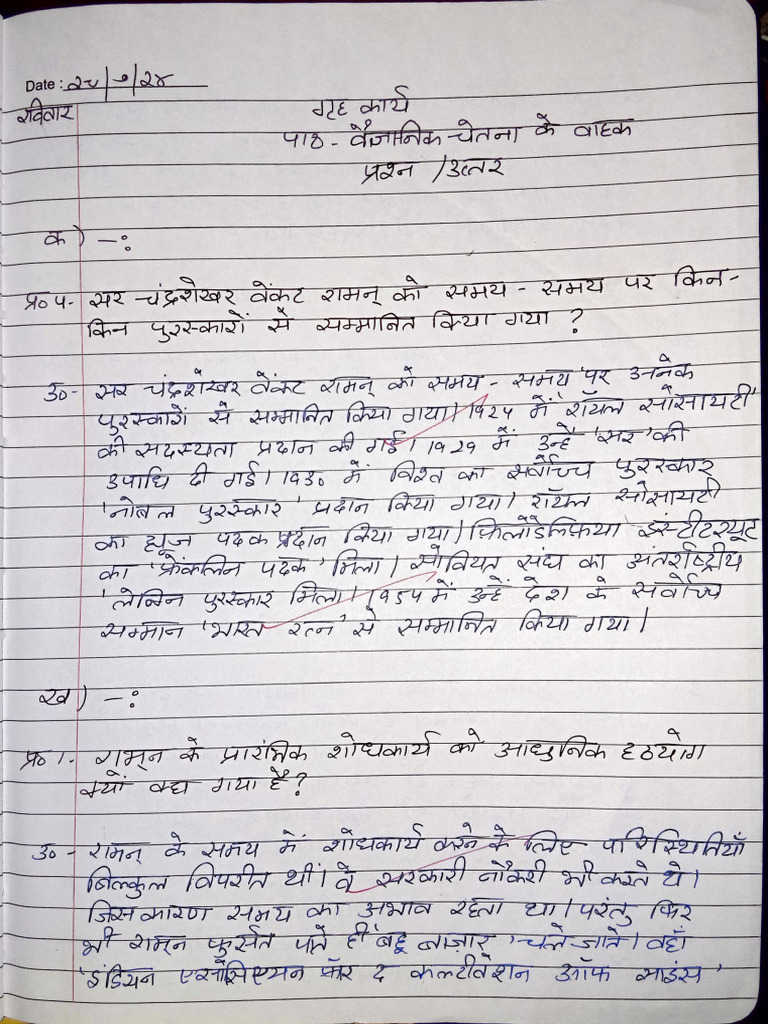 Date : २८/७/२४
रविवार
गृह कार्य
पाठ - वैज्ञानिक चेतना के वाहक
प्रश्न / उत्तर
क) -:
प्र० ५- सर चंद्रशेखर वेंकट रामन् को समय - समय पर किन-
किन पुरस्कारों से सम्मानित किया गया ?
उ०- सर चंद्रशेखर वेंकट रामन् को समय - समय पर अनेक
पुरस्कारों से सम्मानित किया गया। १९२५ में 'रॉयल सोसायटी'
की सदस्यता प्रदान की गई। १९२९ में उन्हें 'सर' की
उपाधि दी गई। १९३० में विश्व का सर्वोच्च पुरस्कार
'नोबल पुरस्कार' प्रदान किया गया। रॉयल सोसायटी
का ह्यूज पदक प्रदान किया गया। फ़िलोडेल्फिया इंस्टीट्यूट
का 'फ्रेंकलिन पदक' मिला। सोवियत संघ का अंतर्राष्ट्रीय
'लेनिन पुरस्कार मिला। १९५४ में उन्हें देश के सर्वोच्च
सम्मान 'भारत रत्न' से सम्मानित किया गया।
ख) -:
प्र० १- रामन् के प्रारंभिक शोधकार्य को आधुनिक हठयोग
क्यों कहा गया है?
उ०- रामन् के समय में शोधकार्य करने के लिए परिस्थितियाँ
बिल्कुल विपरीत थीं। वे सरकारी नौकरी भी करते थे।
जिस कारण समय का अभाव रहता था। परंतु फिर
भी रामन् फुर्सत पाते ही 'बहू बाज़ार' चले जाते। वहाँ
'इंडियन एसोसिएशन फॉर द कल्टीवेशन ऑफ साइंस'